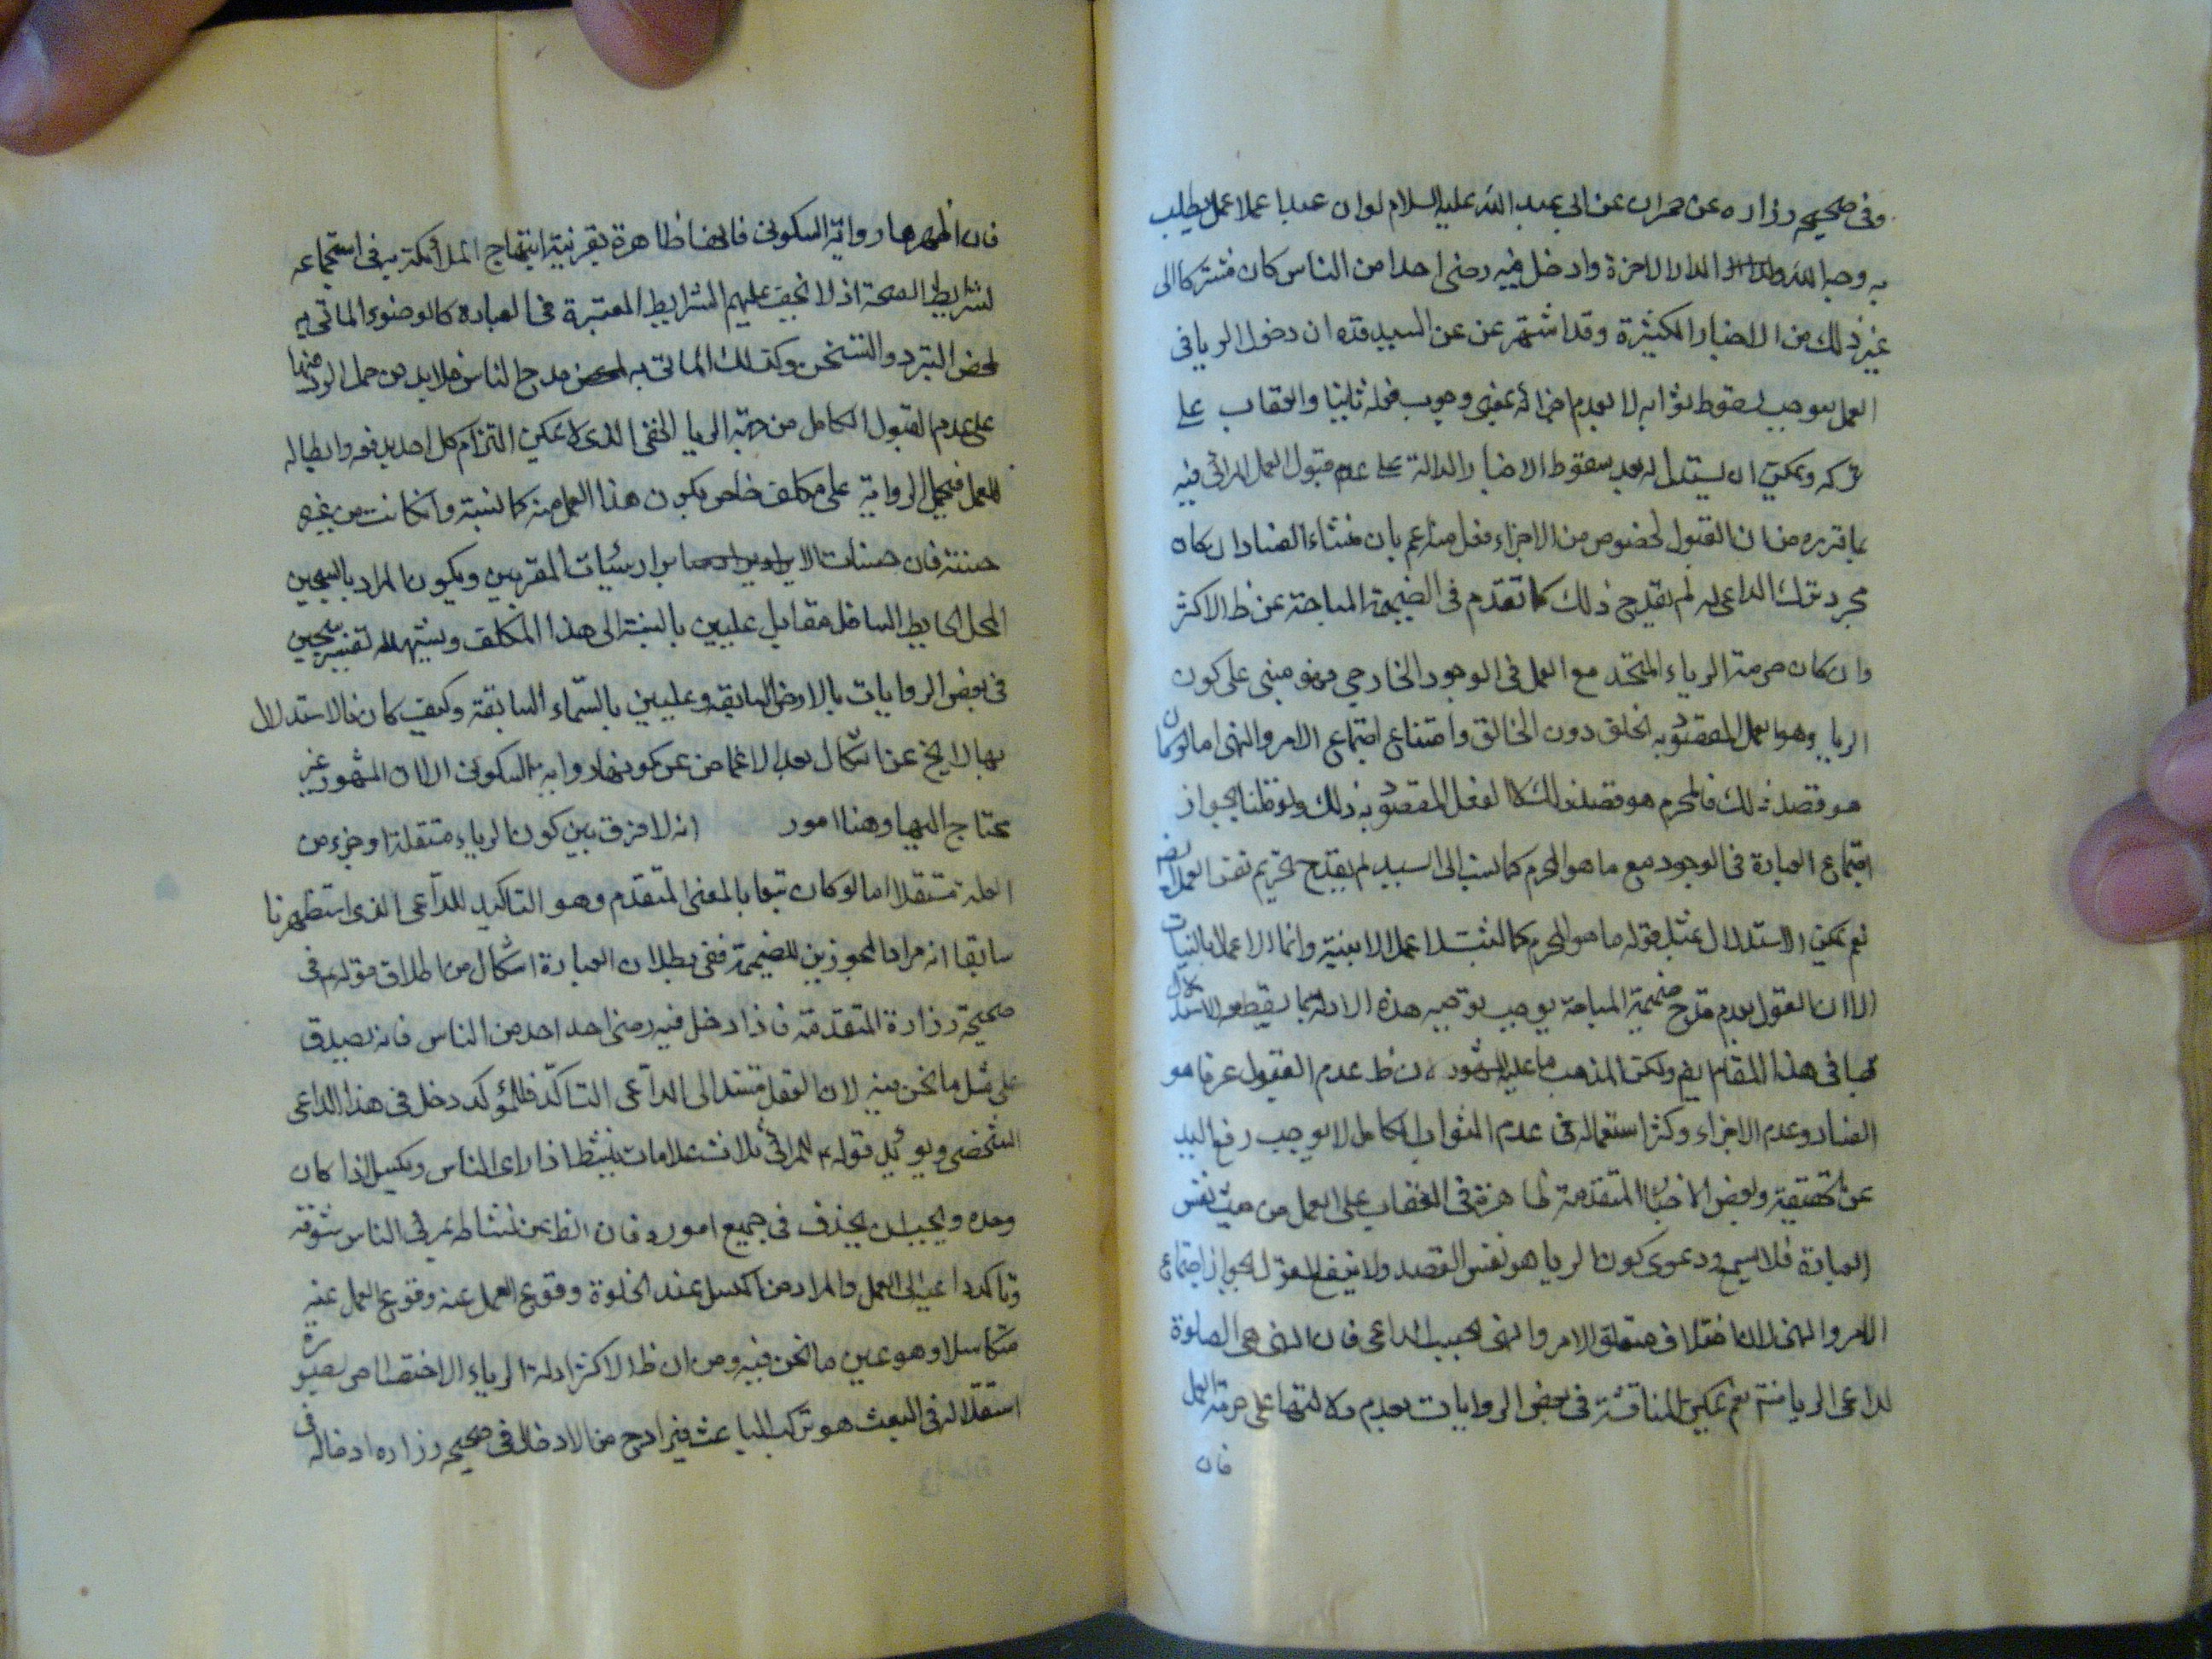 وفى صحيحه زراره عن حمران عن ابى عبد الله عليه السلام لو ان عبدا عمل عملا يطلب
به وجه الله والدار الاخرة وادخل فيه رضى احد من الناس كان مشركا الى
غير ذلك من الاخبار الكثيرة وقد اشتهر عن السيد قده ان دخول الريا فى
العمل يوجب سقوط ثوابه لا لعدم اجزائه بمعنى وجوب فعله ثانيا والعقاب على
تركه ويمكن ان يستدل له بعد سقوط الاخبار الدالة على عدم قبول العمل المرائى فيه
بما قرره من ان القبول اخص من الاجزاء
مجرد ترك الداعى له لم يقدح ذلك كما تقدم فى الضميمة المباحة عن ظ الاكثر
وان كان حرمة الرياء المتحد مع العمل فى الوجود الخارجى فهو مبنى على كون
الريا هو العمل المقصود به الخلق دون الخالق وامتناع اجتماع الامر والنهى اما لو كان
هو قصد ذلك فالمحرم هو قصد ذلك لا الفعل المقصود به ذلك ولو قلنا بجواز
اجتماع العبادة فى الوجود مع ما هو المحرم كما نسب الى السيد لم يقدح تحريم نفس العمل ايضا
نعم يمكن الاستدلال بمثل قوله لا عمل الا بنية وانما الاعمال بالنيات
الا ان القول بعدم قدح ضميمة المباحة يوجب توجيه هذه الادلة بما يسقط معه الاستدلال
بها فى هذا المقام ايضا ولكن المذهب ما عليه المشهور لان ظ عدم القبول عرفا هو
الفساد وعدم الاجزاء وكثرة استعماله فى عدم الثواب الكامل لا يوجب رفع اليد
عن الحقيقة وبعض الاخبار المتقدمة ظاهرة فى العقاب على العمل من حيث نفس
العبادة فلا يسمع دعوى كون الريا هو نفس القصد ولا ينفع القول بجواز اجتماع
الامر والنهى اذا اختلاف متعلق الامر والنهى بحسب الداعى فان النهى هى الصلوة
لداعى الريا فتم نعم يمكن المناقشة فى بعض الروايات بعدم دلالتها على حرمة العمل
فان
فان اظهرها رواية السكونى فانها ظاهرة بقرينة ابتهاج الملائكة به فى استجماعه
لشرايط الصحة اذ لا يخفى عليهم الشرايط المعتبرة فى العبادة كالوضوء الماتى به
لمحض التبرد والتسخن وكذلك الماتى به لمحض مدح الناس فلا بد من حمل الرد فيها
على عدم القبول الكامل من جهة الريا الخفى الذى لا يمكن التزام كل احد برفعه وابطاله
للعمل فيحمل الرواية على مكلف خاص يكون هذا العمل منه كالسيئة وان كانت من غيره
حسنة فان حسنات الابرار سيئات المقربين ويكون المراد بالسجين
المحل الهابط السافل مقابل عليين بالنسبة الى هذا المكلف ويشهد له تفسير سجين
فى بعض الروايات بالارض السابعة وعليين بالسماء السابعة وكيف كان فالاستدلال
بها لا يخ عن اشكال بعد الاغماض عن كونها رواية السكونى الا ان المشهور غير
محتاج اليها وهنا امور انه لا فرق بين كون الرياء مستقلة او جزء من
العلة مستقلا اما لو كان تبعا بالمعنى المتقدم وهو التاكيد للداعى الذى استظهرنا
سابقا انه مراد المجوزين للضميمة ففى بطلان العبادة اشكال من اطلاق قوله ع فى
صحيحة زرارة المتقدمة فاذا دخل فيه رضى احد من الناس فانه يصدق
على مثل ما نحن فيه لان الفعل مستند الى الداعى المتاكد فللمؤكد دخل فى هذا الداعى
الشخصى ويؤيد قوله ع للمرائى ثلاث علامات ينشط اذا راى الناس ويكسل اذا كان
وحده ويحب ان يحمد فى جميع اموره فان الظ من نشاطه بمرئى الناس شوقه
وتاكد داعيه الى العمل والمراد من الكسل عند الخلوة وقوع العمل عنه
متكاسلا وهو عين ما نحن فيه ومن ان ظ الاكثر ادلة الرياء الاختصاص بصورة
استقلاله فى البعث هو تركب الباعث فيراد من الادخال فى صحيحه زراره ادخاله فى